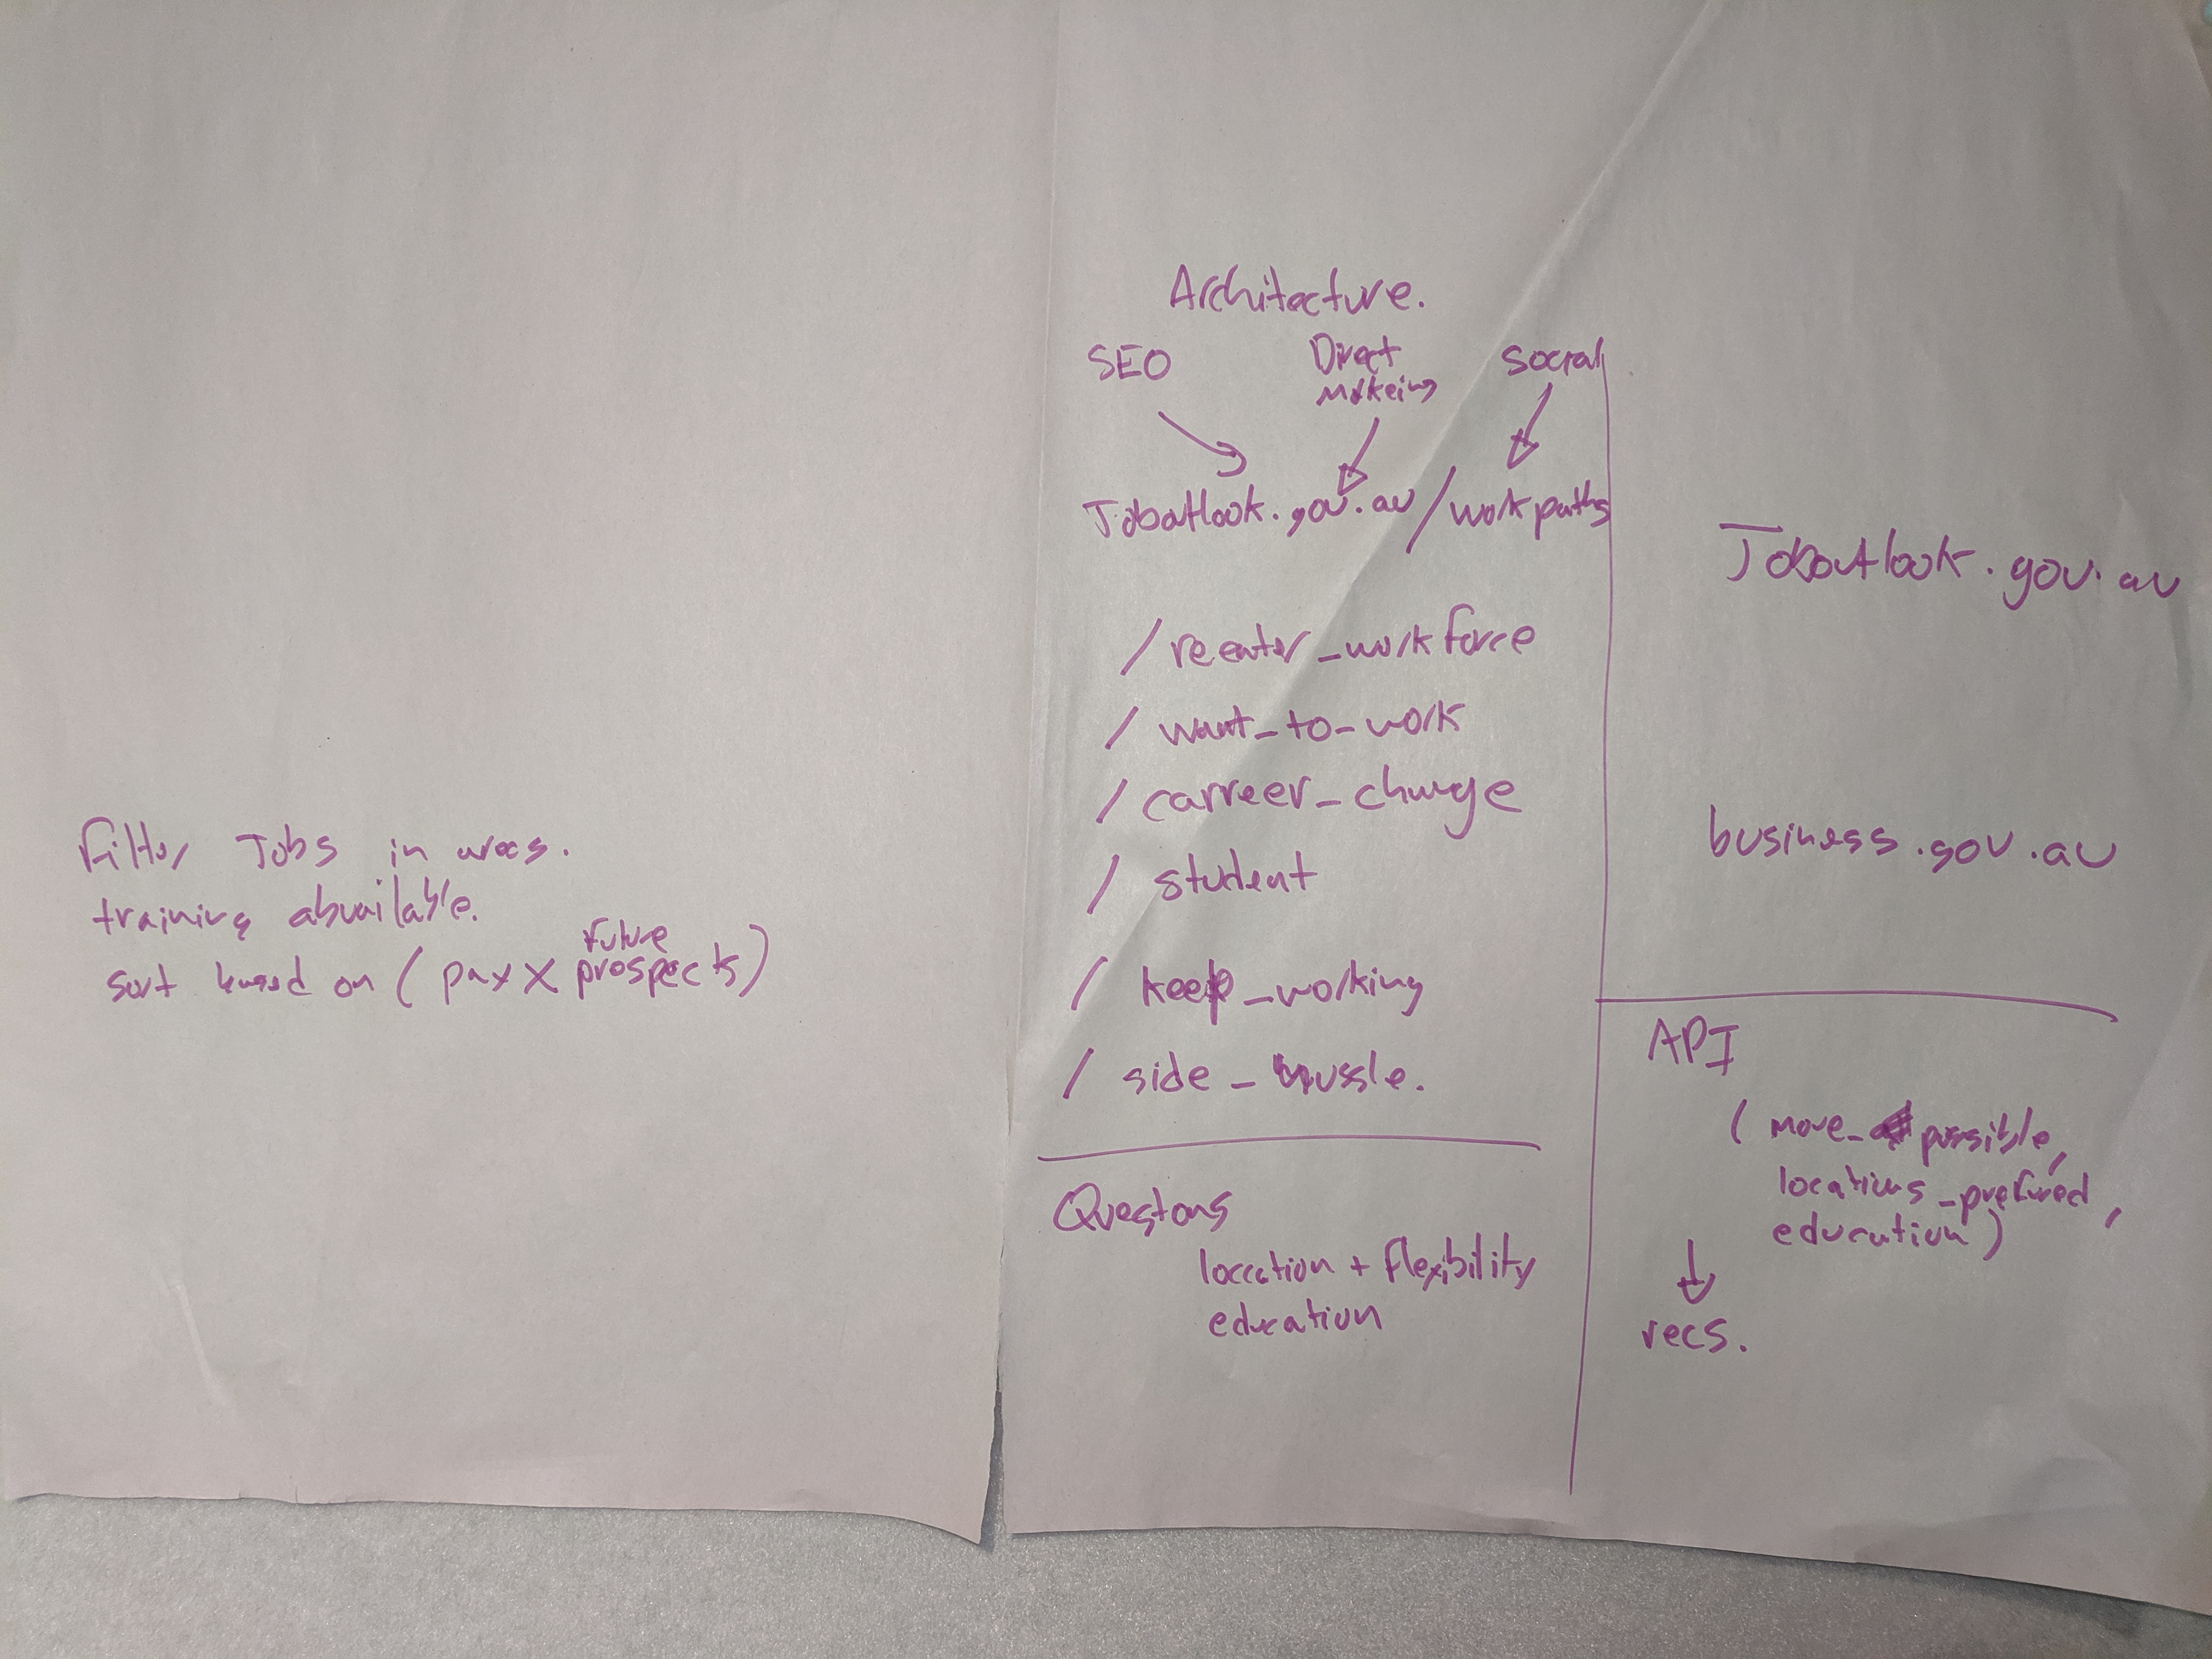 filter Jobs in areas.
training abvailable.
sort based on (pay X future prospects)
Architecture.
SEO
Direct
Social
Joboutlook.gov.au/workpaths
/reenter_workforce
/want_to_work
/carreer_change
/student
/keep_working
/side_hussle.
Questons
location + flexibility
education
Joboutlook.gov.au
business.gov.au
API
(move_possible,
locations_prefured,
education)
recs.